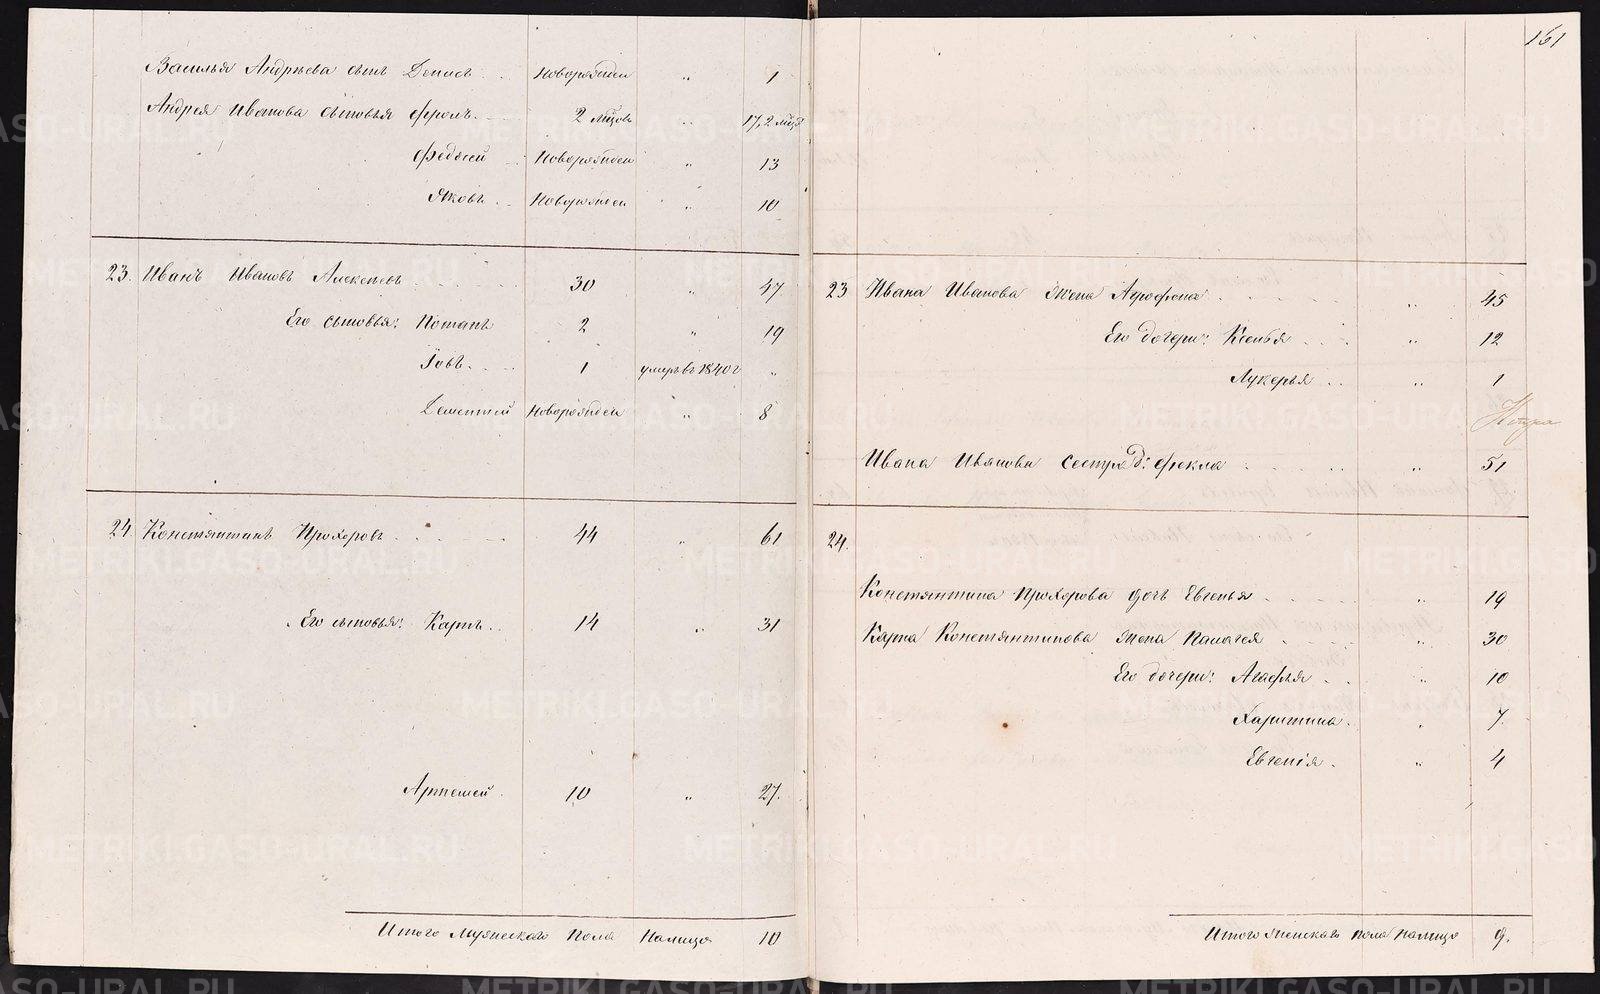 161
Василья Андреева сынъ Денисъ новорожден " 1
Андрея Иванова сыновья Фролъ 2 мѣсов " 17, 2 мѣся
Федосей новорожден " 13
Яковъ новорожден " 10
23. Иванъ Ивановъ Алексѣевъ 30 " 47
Его сыновья: Потапъ 2 " 19
Іовъ 1 умеръ въ 1840 г "
Дементей новорожден " 8
24. Константинъ Прохоровъ 44 " 61
Его сыновья: Карпъ 14 " 31
Артемей 10 " 27.
Итого мужескаго пола налицо 10
23 Ивана Иванова жена Агрофена " 45
Его дочери: Ксенья " 12
Лукерья " 1
Ивана Иванова сестра д: Фекла " 51
24.
Константина Прохорова дочь Евгенья " 19
Карпа Константинова жена Палагея " 30
Его дочери: Агафья " 10
Харитина " 7
Евгенія " 4
Итого женскаго пола налицо 9.
METRIKI.GASO-URAL.RU